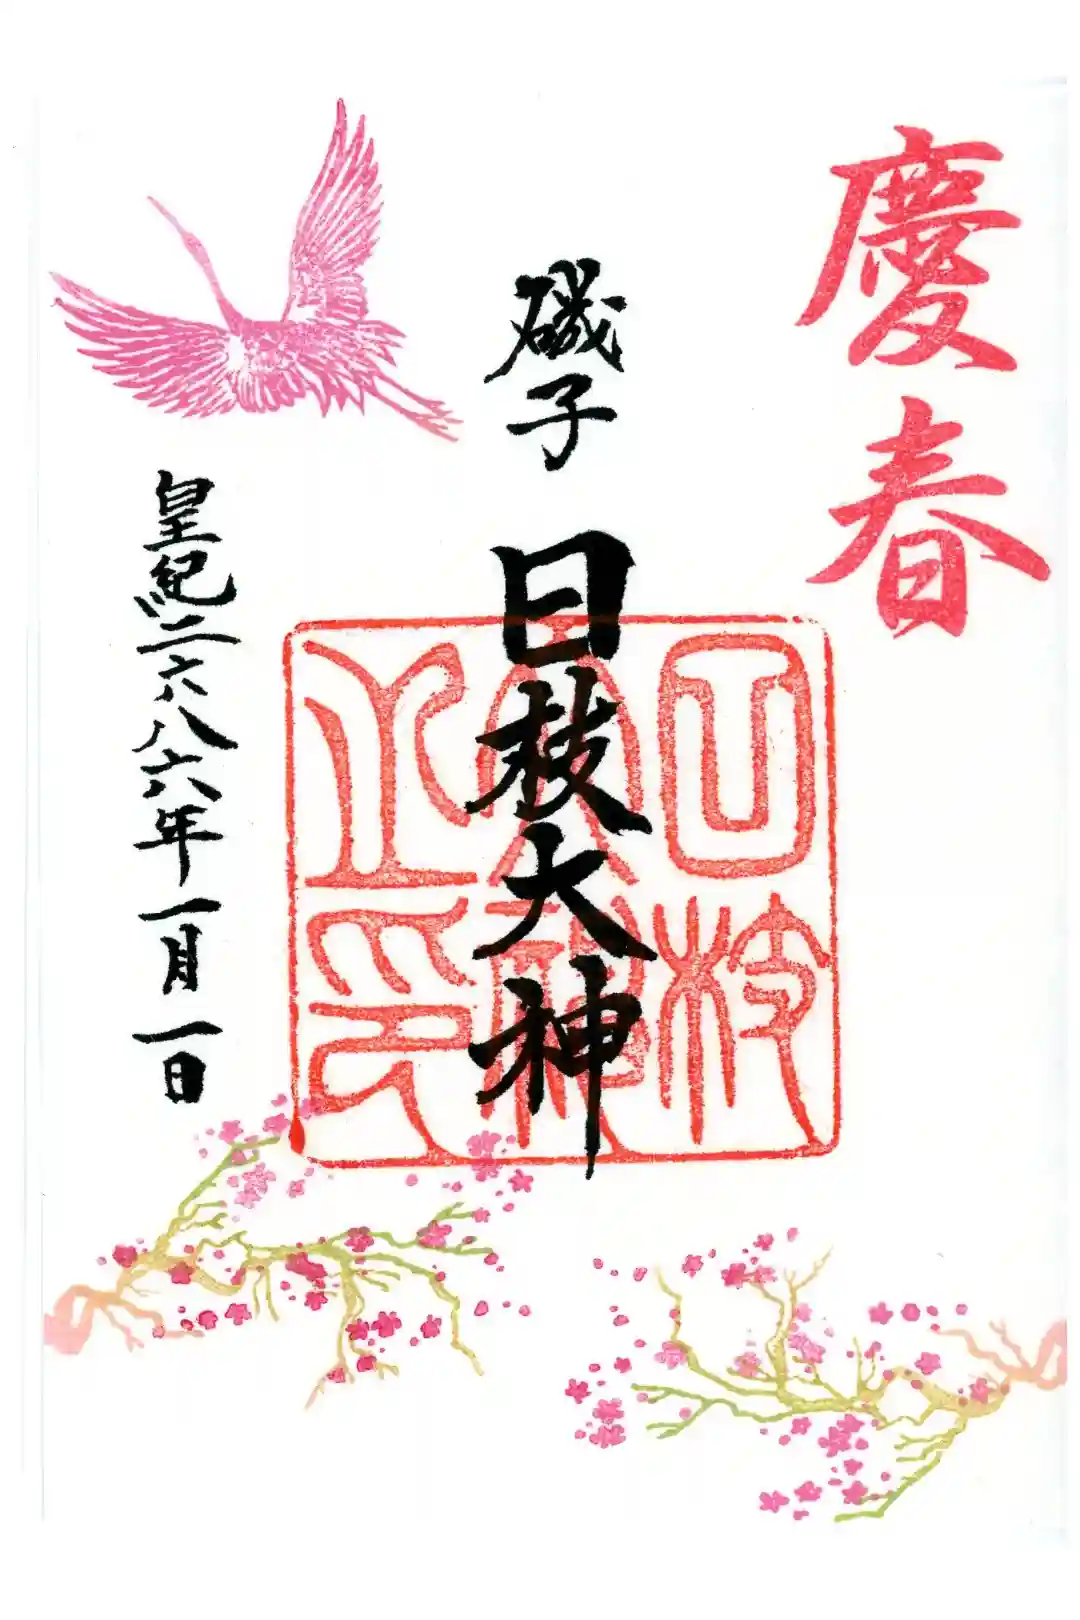 慶春
磯子
日枝大神
日枝大神之印
皇紀二六八六年一月一日